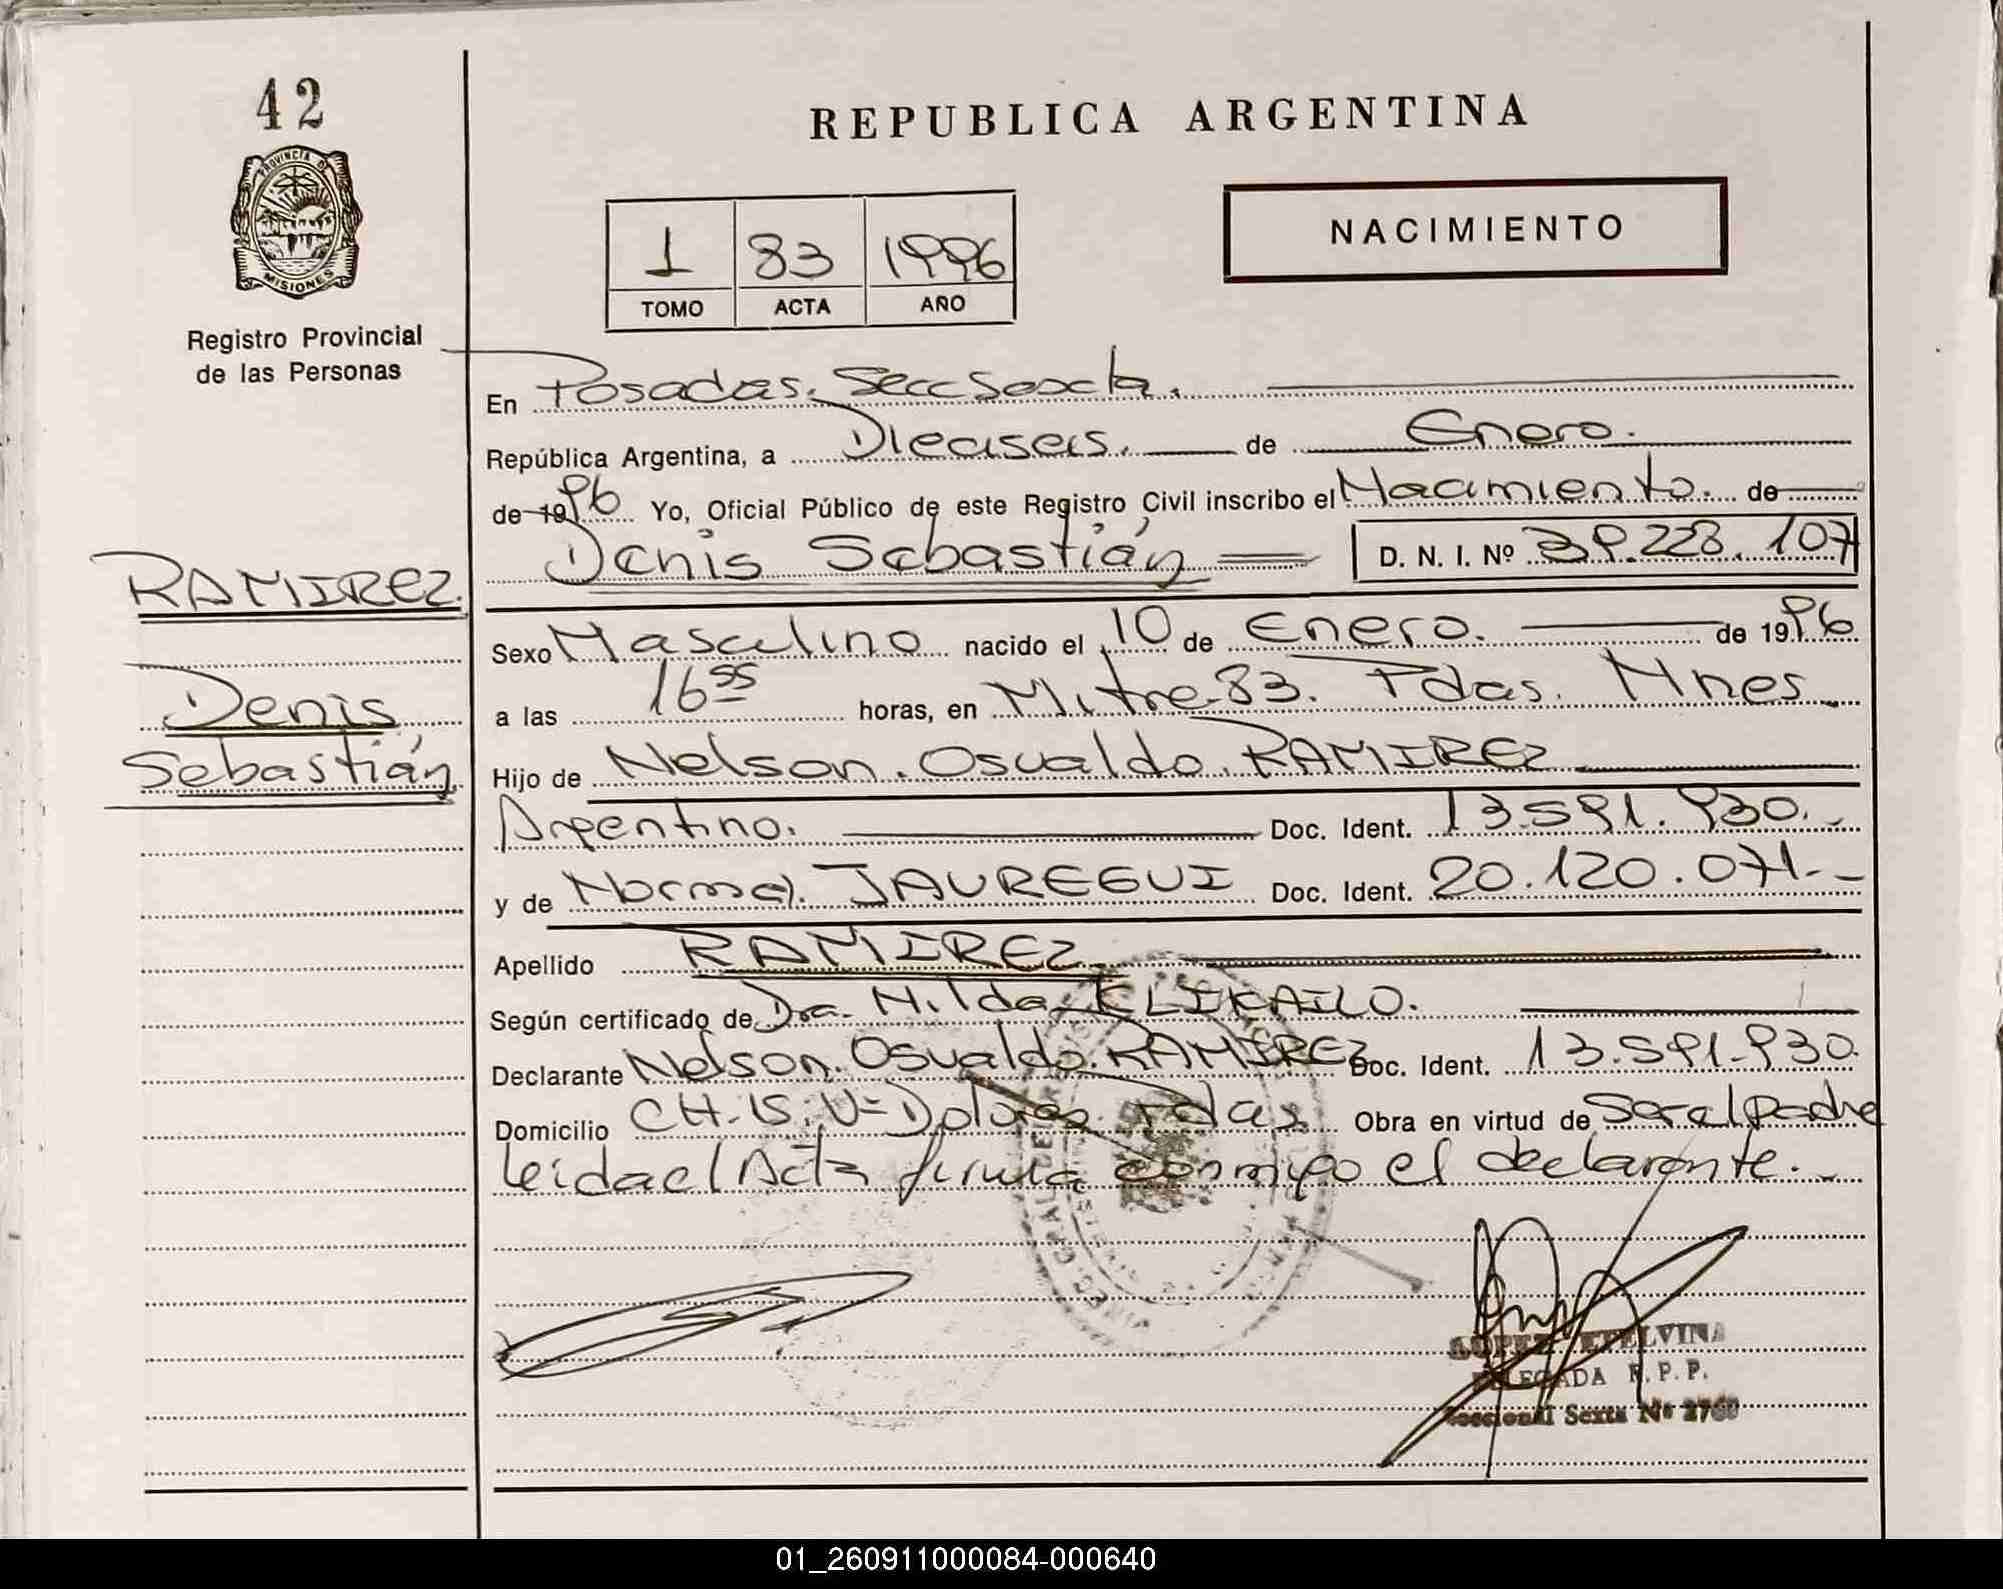 42
PROVINCIA DE
MISIONES
Registro Provincial
de las Personas
RAMIREZ.
Denis
Sebastián
REPUBLICA ARGENTINA
NACIMIENTO
1 83 1996
TOMO ACTA AÑO
En Posadas. Secc Sexta.
República Argentina, a Dieciseis. de Enero.
de 1996 Yo, Oficial Público de este Registro Civil inscribo el Nacimiento. de
Denis Sebastián D. N. I. Nº 39.228.107
Sexo Masculino nacido el 10 de Enero. de 1996
a las 16 55 horas, en Mitre 83. Pdas. Mnes
Hijo de Nelson. Osvaldo. RAMIREZ
Argentino. Doc. Ident. 13.591.930.
y de Norma. JAUREGUI Doc. Ident. 20.120.071.
Apellido RAMIREZ
Según certificado de Dra. Hilda KLIKAILO.
Declarante Nelson. Osvaldo. RAMIREZ Doc. Ident. 13.591.930.
Domicilio CH. 15. Vª Dolores. Pdas. Obra en virtud de Ser al padre
leida el Acta firma conmigo el declarante.
LOPEZ ETELVINA
DELEGADA R. P. P.
Seccional Sexta Nº 2760
01_260911000084-000640